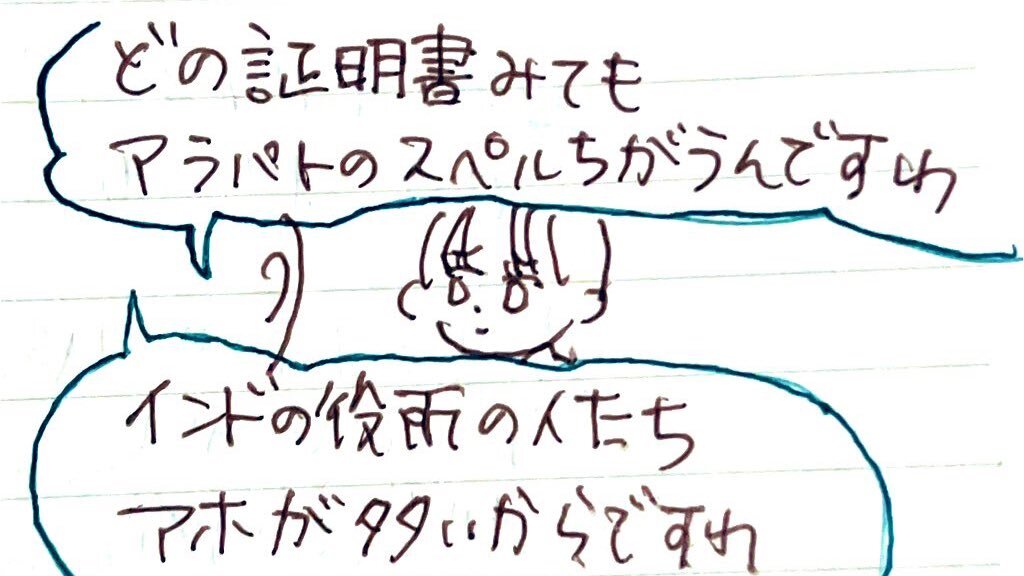 どの証明書みても
アラパトのスペルちがうんですわ
インドの役所の人たち
アホがタタいからですわ